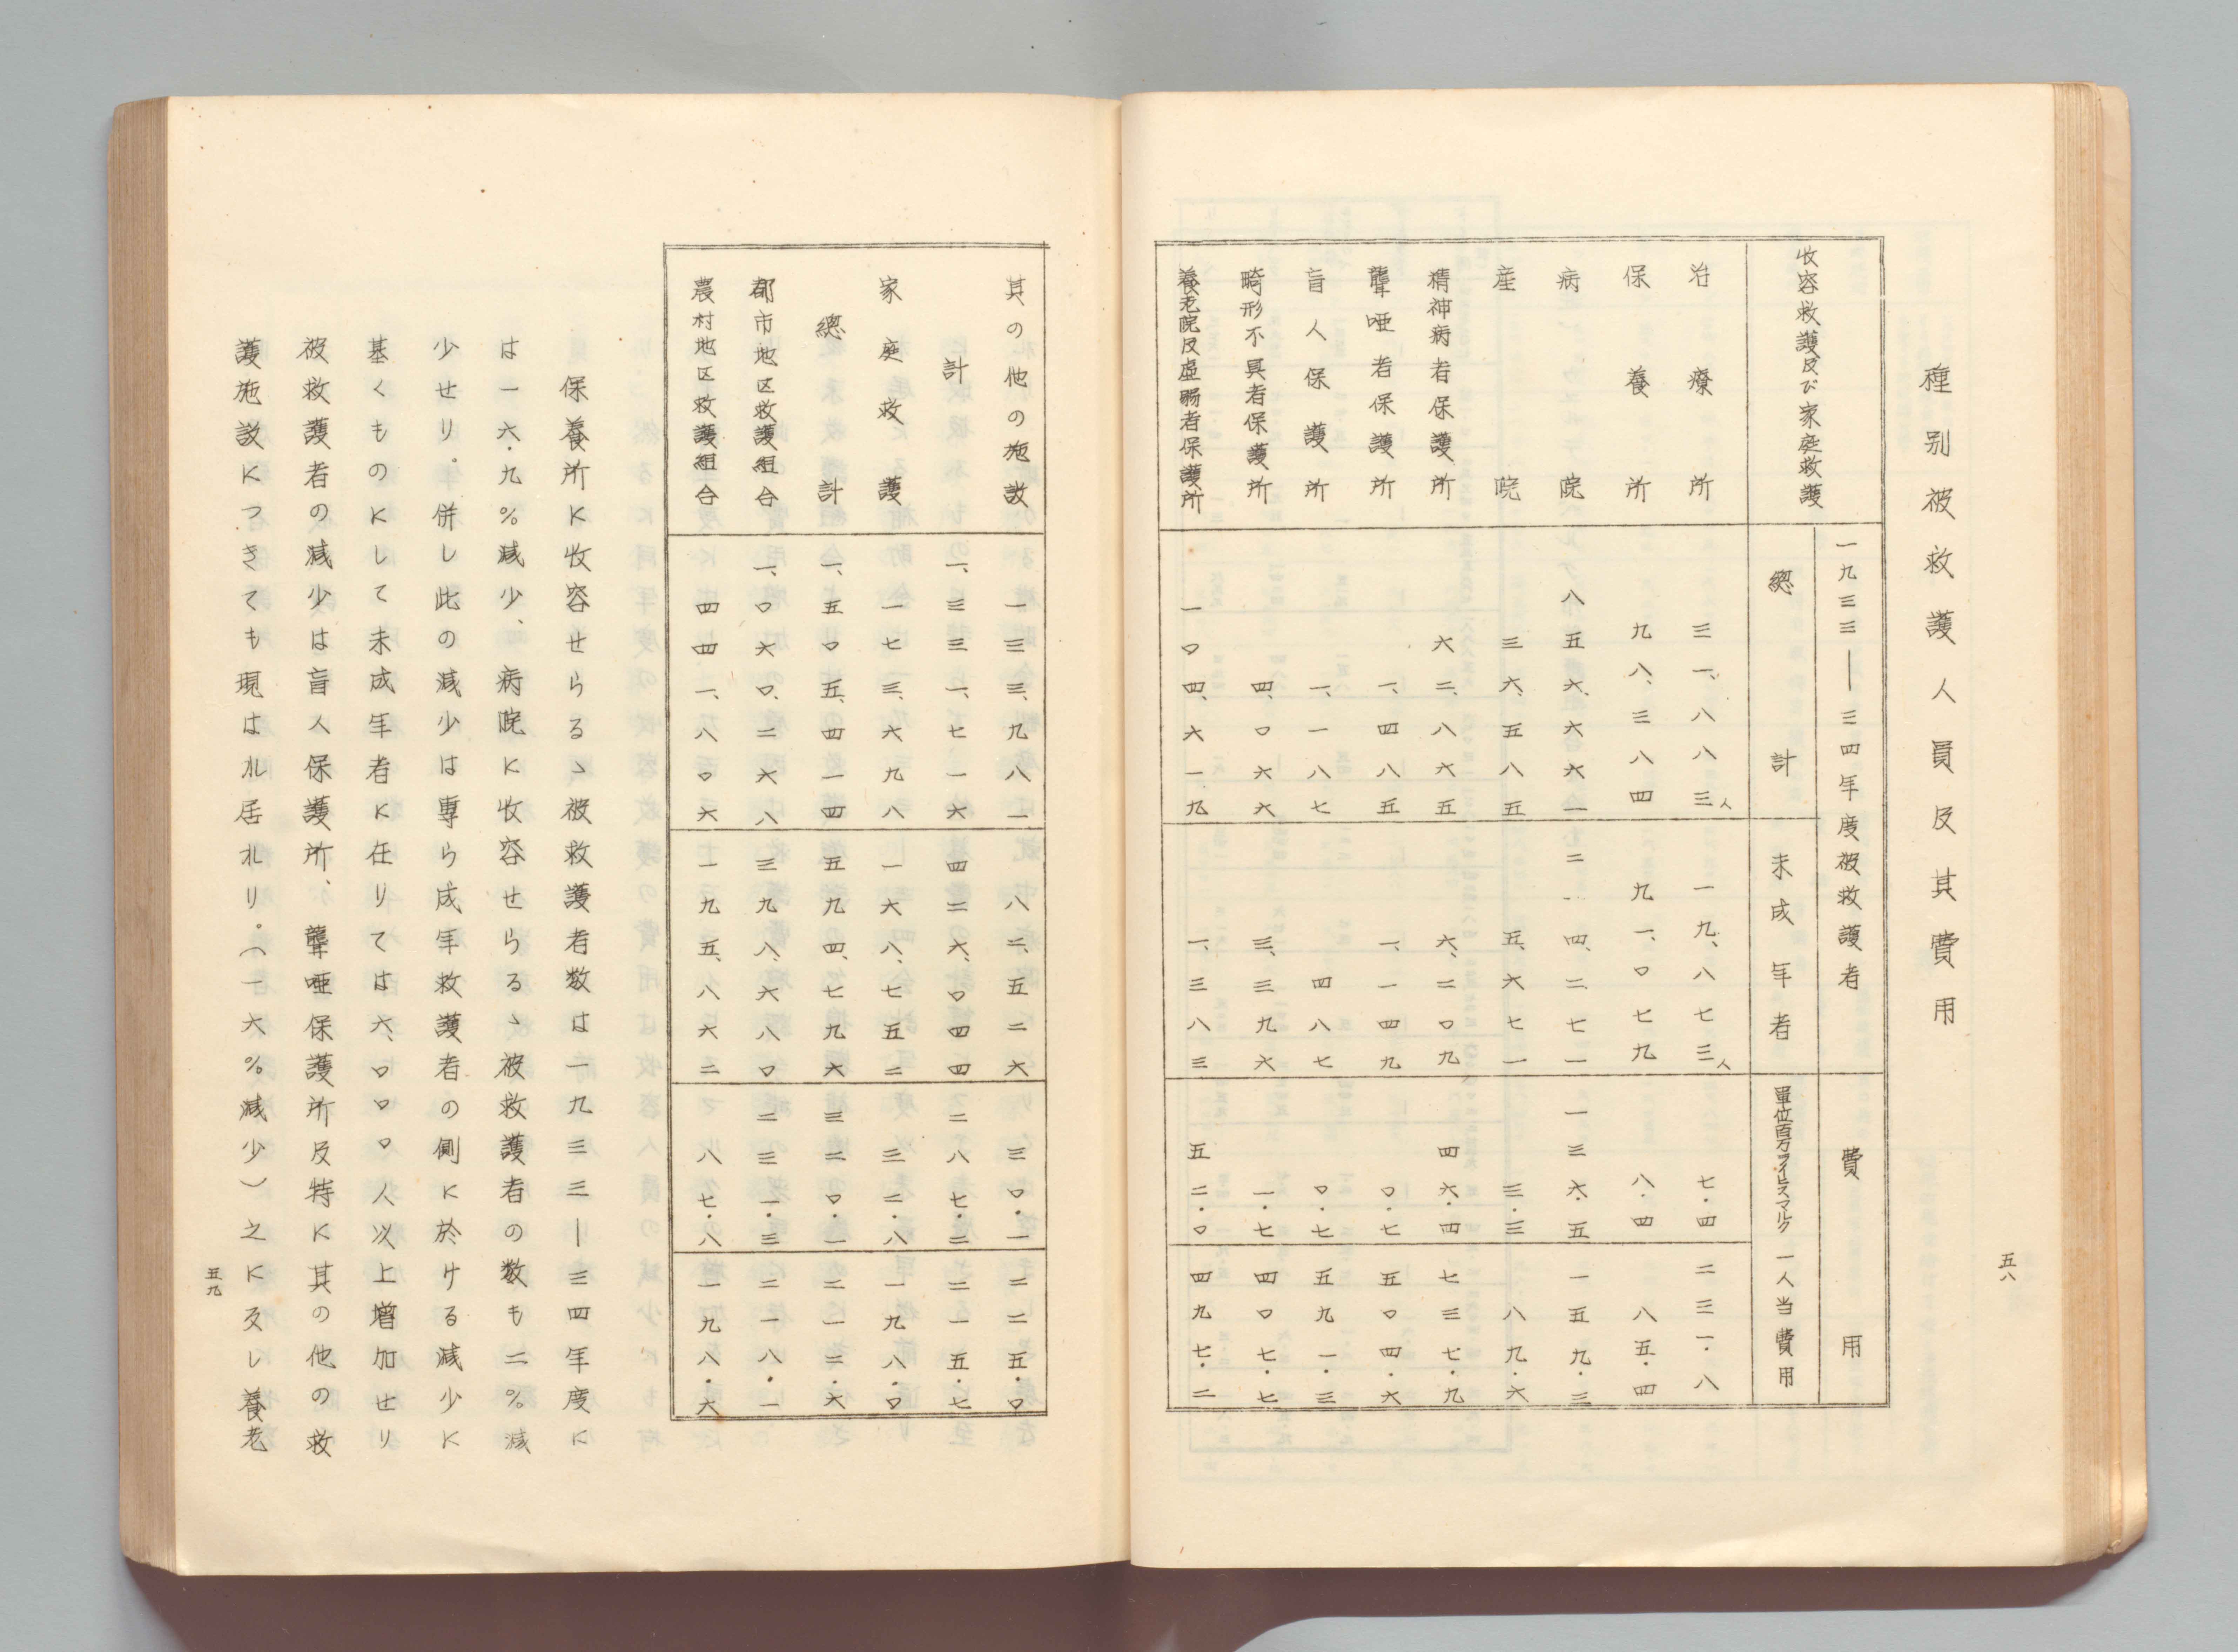 五八
種別被救護人員及其費用
收容救護及び家庭救護 一九三三――三四年度被救護者 費用
總計 未成年者 單位百万ライヒスマルク 一人当費用
治療所 三一、八八三人 一九、八七三人 七・四 二三一・八
保養所 九八、三八四 九一、〇七九 八・四 八五・四
病院 八五六、六六一 二一四、二七一 一三六・五 一五九・三
産院 三六、五八五 五、六七一 三・三 八九・六
精神病者保護所 六二、八六五 六、二〇九 四六・四 七三七・九
聾唖者保護所 一、四八五 一、一四九 〇・七 五〇四・六
盲人保護所 一、一八七 四八七 〇・七 五九一・三
畸形不具者保護所 四、〇六六 三、三九六 一・七 四〇七・七
養老院及虚弱者保護所 一〇四、六一九 一、三八三 五二・〇 四九七・二
其の他の施設 一三三、九八一 八二、五二六 三〇・一 二二五・〇
計 一、三三一、七一六 四二六、〇四四 二八七・二 二一五・七
家庭救護 一七三、六九八 一六八、七五二 三二・八 一九八・〇
總計 一、五〇五、四一四 五九四、七九六 三二〇・一 二一二・六
都市地区救護組合 一、〇六〇、二六八 三九八、六八〇 二三一・三 二一八・一
農村地区救護組合 四四一、八〇六 一九五、八六二 八七・八 一九八・六
保養所に收容せらるゝ被救護者数は一九三三―三四年度に
は一六・九％減少、病院に收容せらるゝ被救護者の数も二％減
少せり。併し此の減少は専ら成年救護者の側に於ける減少に
基くものにして未成年者に在りては六、〇〇〇人以上増加せり
被救護者の減少は盲人保護所、聾唖保護所及特に其の他の救
護施設につきても現はれ居れり。（一六％減少）之に反し養老
五九